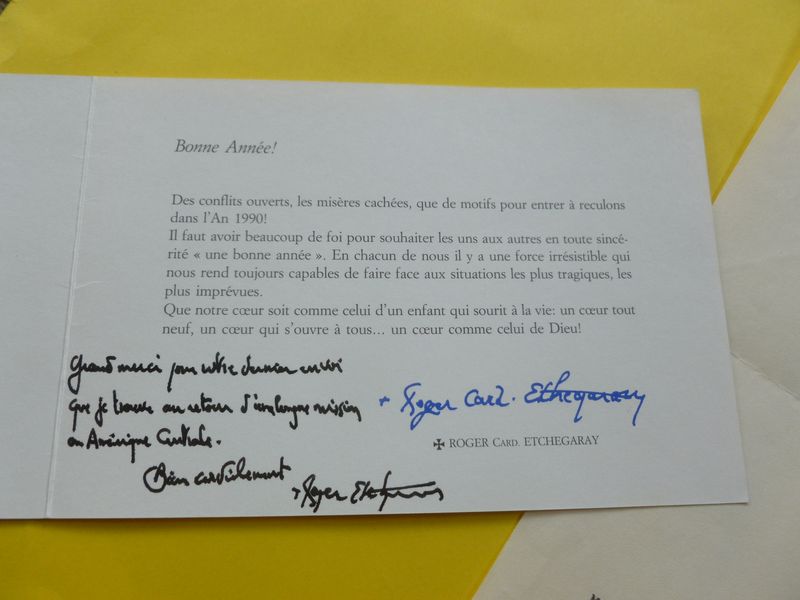 Bonne Année!
Des conflits ouverts, les misères cachées, que de motifs pour entrer à reculons
dans l'An 1990!
Il faut avoir beaucoup de foi pour souhaiter les uns aux autres en toute sincé-
rité « une bonne année ». En chacun de nous il y a une force irrésistible qui
nous rend toujours capables de faire face aux situations les plus tragiques, les
plus imprévues.
Que notre cœur soit comme celui d'un enfant qui sourit à la vie: un cœur tout
neuf, un cœur qui s'ouvre à tous... un cœur comme celui de Dieu!
Grand merci pour votre dernier envoi
que je trouve au retour d'une longue mission
en Amérique Centrale.
Bien cordialement
+ Roger Etchegaray
+ Roger Card. Etchegaray
✠ ROGER CARD. ETCHEGARAY